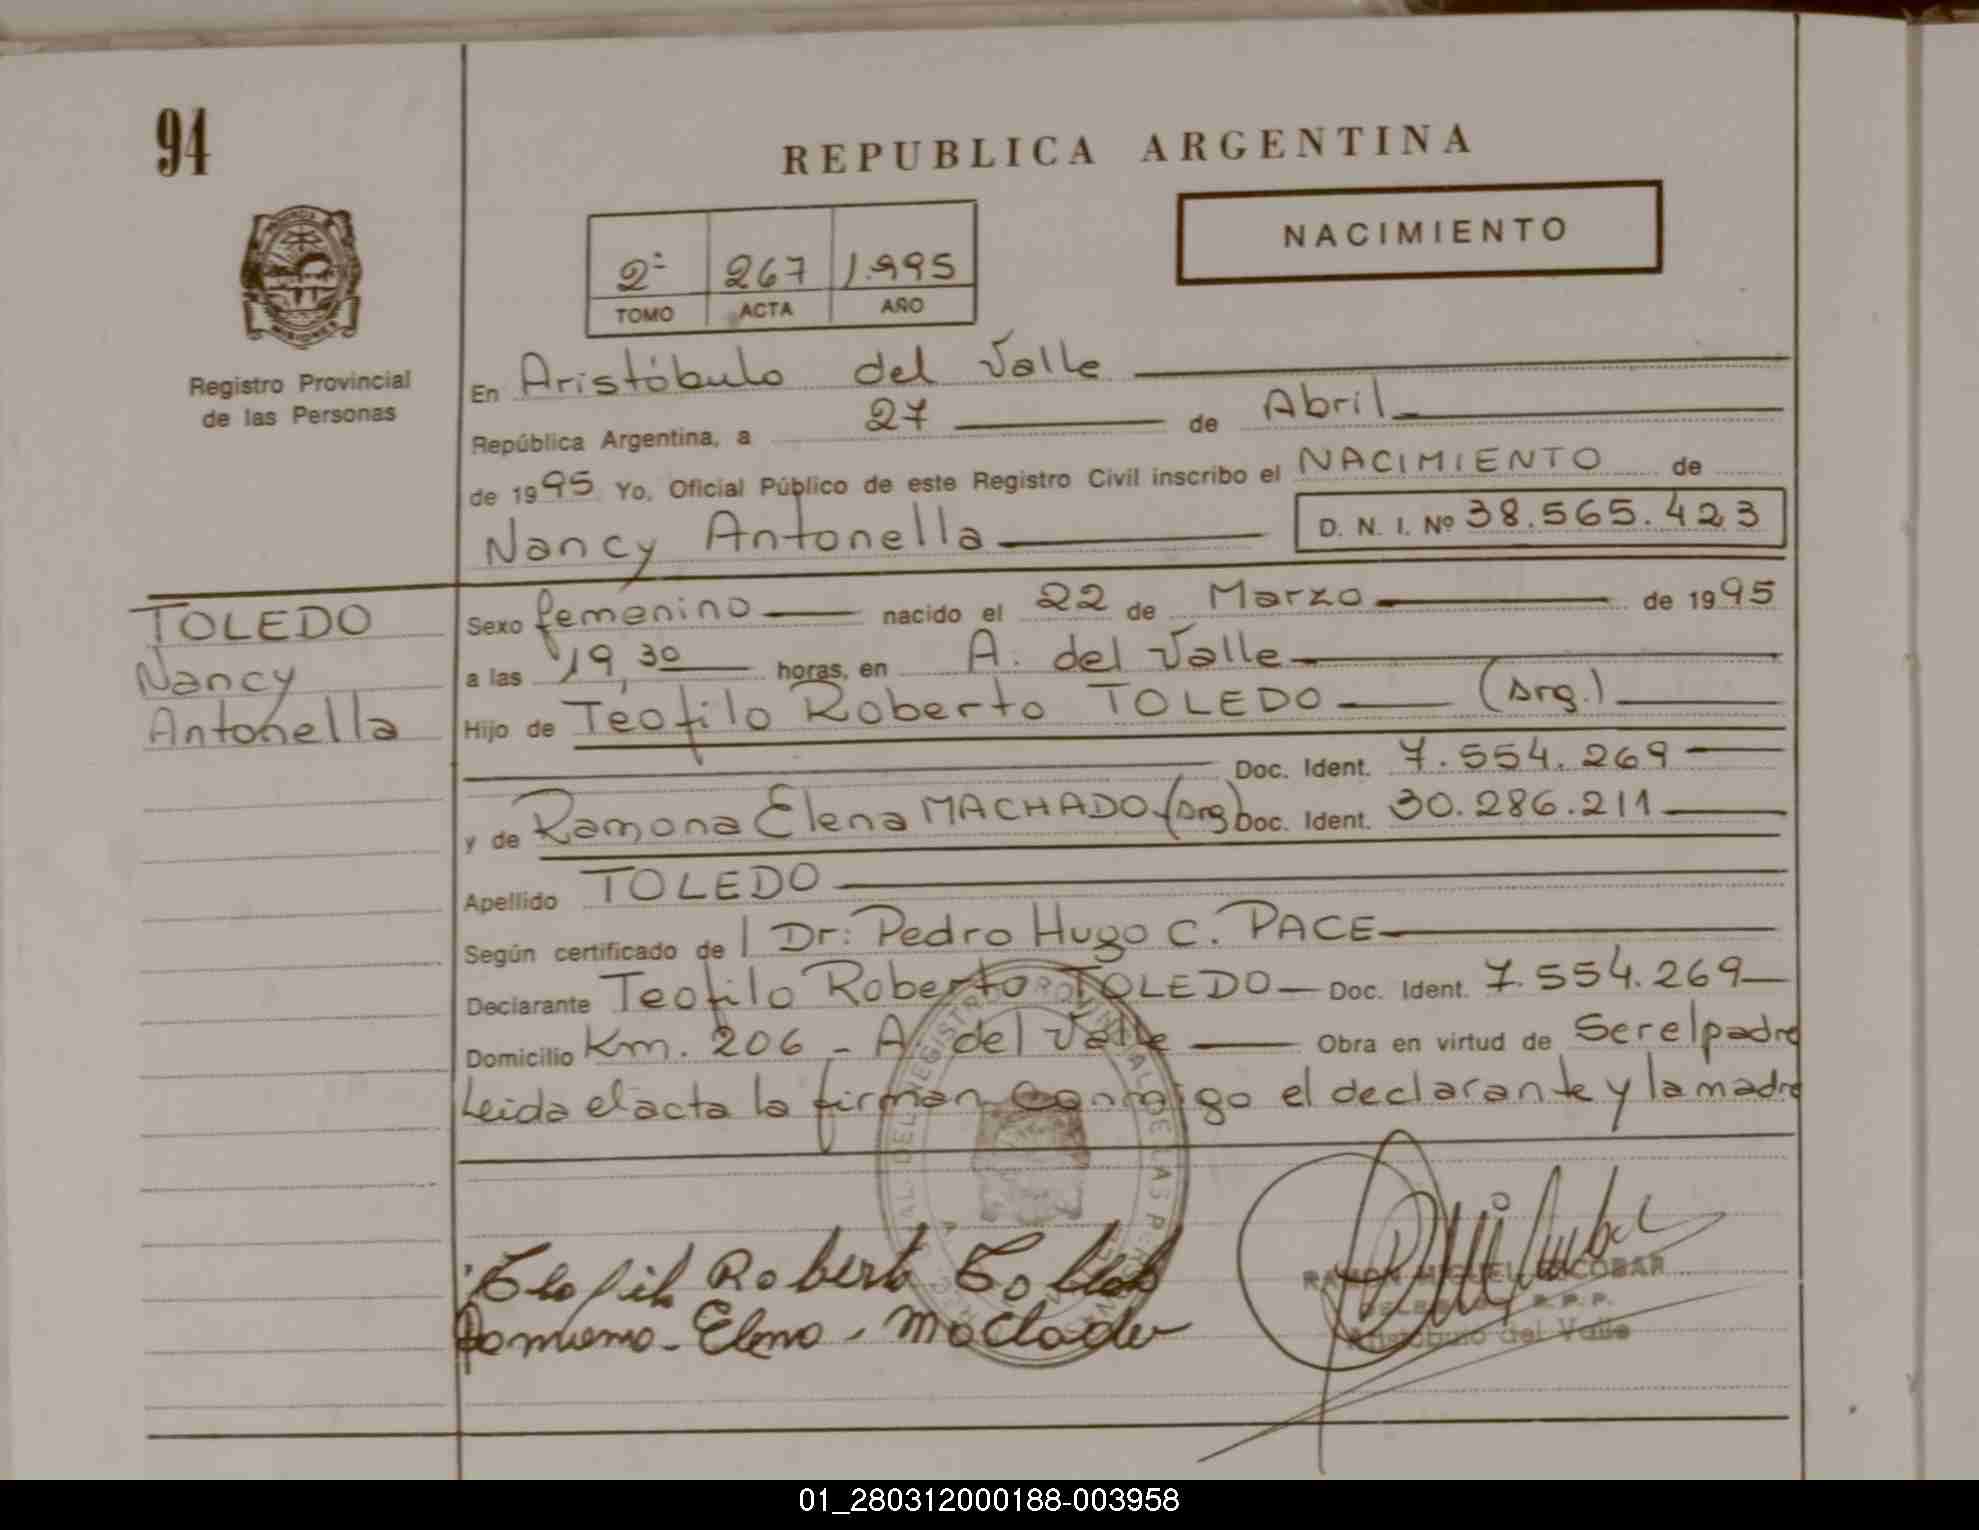 94
REPUBLICA ARGENTINA
NACIMIENTO
2º 267 1.995
TOMO ACTA AÑO
MISIONES
Registro Provincial
de las Personas
En Aristóbulo del Valle
República Argentina, a 27 de Abril
de 1995 Yo, Oficial Público de este Registro Civil inscribo el NACIMIENTO de
Nancy Antonella D. N. I. Nº 38.565.423
TOLEDO
Nancy
Antonella
Sexo femenino nacido el 22 de Marzo de 1995
a las 19,30 horas, en A. del Valle
Hijo de Teofilo Roberto TOLEDO (Arg.)
Doc. Ident. 7.554.269
y de Ramona Elena MACHADO (Arg) Doc. Ident. 30.286.211
Apellido TOLEDO
Según certificado de Dr: Pedro Hugo C. PACE
Declarante Teofilo Roberto TOLEDO Doc. Ident. 7.554.269
Domicilio Km. 206 - A. del Valle Obra en virtud de Ser el padre
Leida el acta la firman conmigo el declarante y la madre
REGISTRO PROVINCIAL DE LAS PERSONAS
Teofilo Roberto Toledo
Elena Machado
RAMON MIGUEL ESCOBAR
R.P.P.
Aristobulo del Valle
01_280312000188-003958